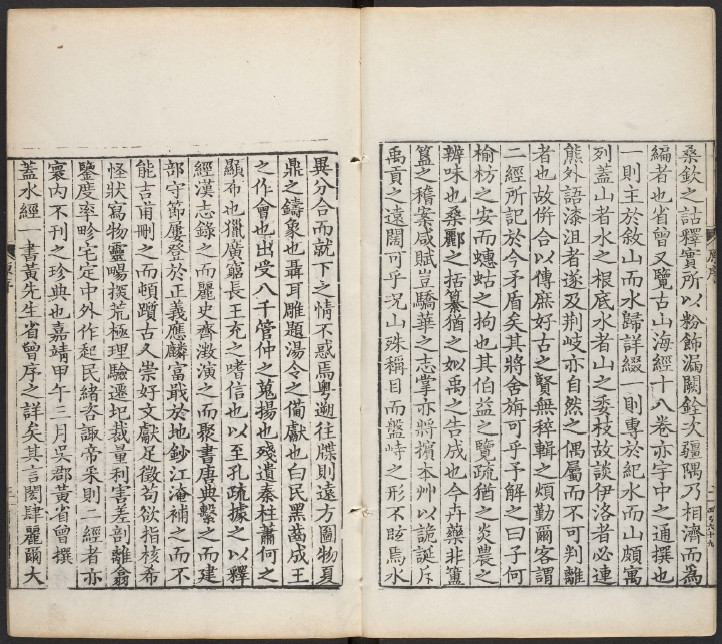 桑欽之詁釋實所以粉飾漏闕銓次疆隅乃相濟而爲
編者也省曾又覽古山海經十八卷亦宇中之通撰也
一則主於敘山而水歸詳綴一則專於紀水而山頗寓
列蓋山者水之根底水者山之委枝故談伊洛者必連
熊外語漆沮者遂及荆岐亦自然之偶屬而不可判離
者也故併合以傳庶好古之賢無稡輯之煩勤爾客謂
二經所記於今矛盾矣其將舍旃可乎予解之曰子何
榆枋之安而蟪蛄之拘也其伯益之覽疏猶之炎農之
辨味也桑酈之括纂猶之姒禹之告成也今卉藥非簠
簋之稽案咸賦豈驕華之志掌亦將擯本艸以詭誕斥
禹貢之遠闊可乎況山殊稱目而盤峙之形不眩焉水
異分合而就下之情不惑焉粤遡往牒則遠方圖物夏
鼎之鑄象也聶耳雕題湯令之備獻也白民黑齒成王
之作會也出受八千管仲之蒐揚也殘遺秦柱蕭何之
顯布也獵廣竆長王充之嗜信也以至孔疏據之以釋
經漢志錄之而麗史齊澂演之而聚書唐典繫之而建
部守節屢登於正義應麟富戢於地鈔江淹補之而不
能古甫刪之而頓躓古久崇好文獻足徵茍欲指核希
怪狀寫物靈暢探荒極理驗遷圯裁量利害差剖離翕
鑒度率畛宅定中外作起民緒咨諏帝采則二經者亦
寰内不刊之珍典也嘉靖甲午三月吳郡黃省曾撰
蓋水經一書黃先生省曾序之詳矣其言閎肆麗爾大